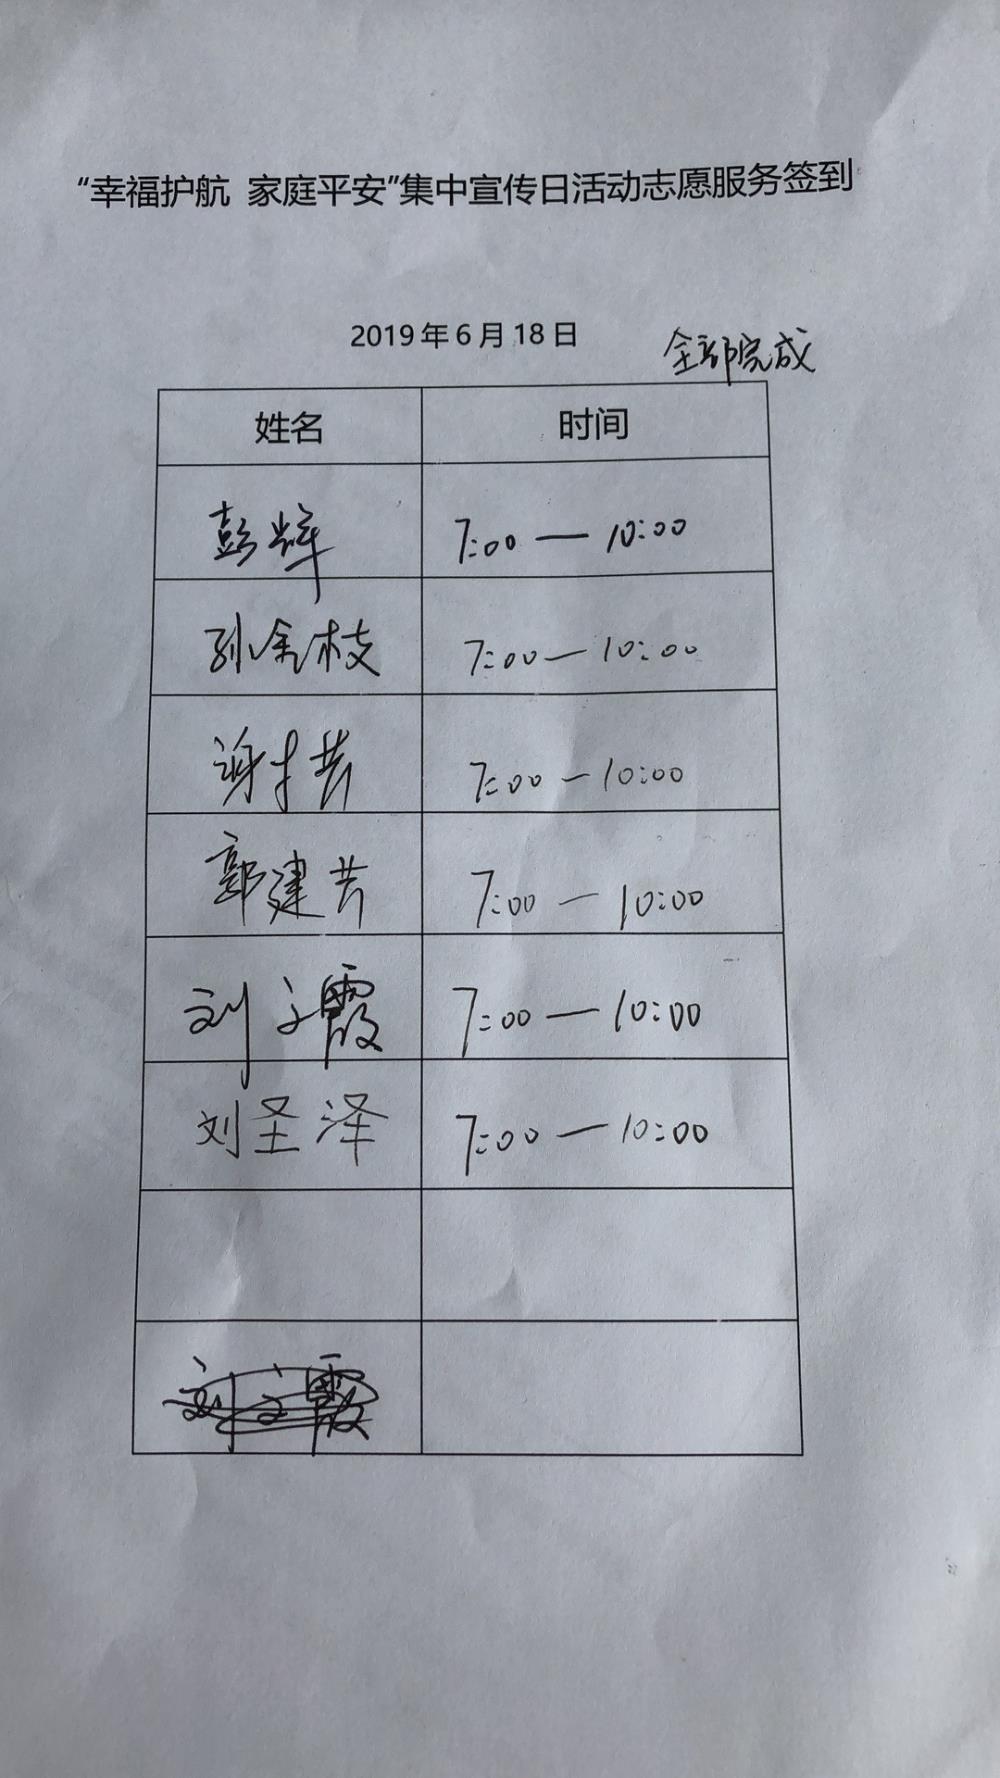 “幸福护航 家庭平安”集中宣传日活动志愿服务签到
2019年6月18日 全部完成
姓名 时间
彭辉 7:00—10:00
孙金枝 7:00—10:00
谢才芸 7:00—10:00
郭建芸 7:00—10:00
刘文霞 7:00—10:00
刘圣泽 7:00—10:00
刘文霞